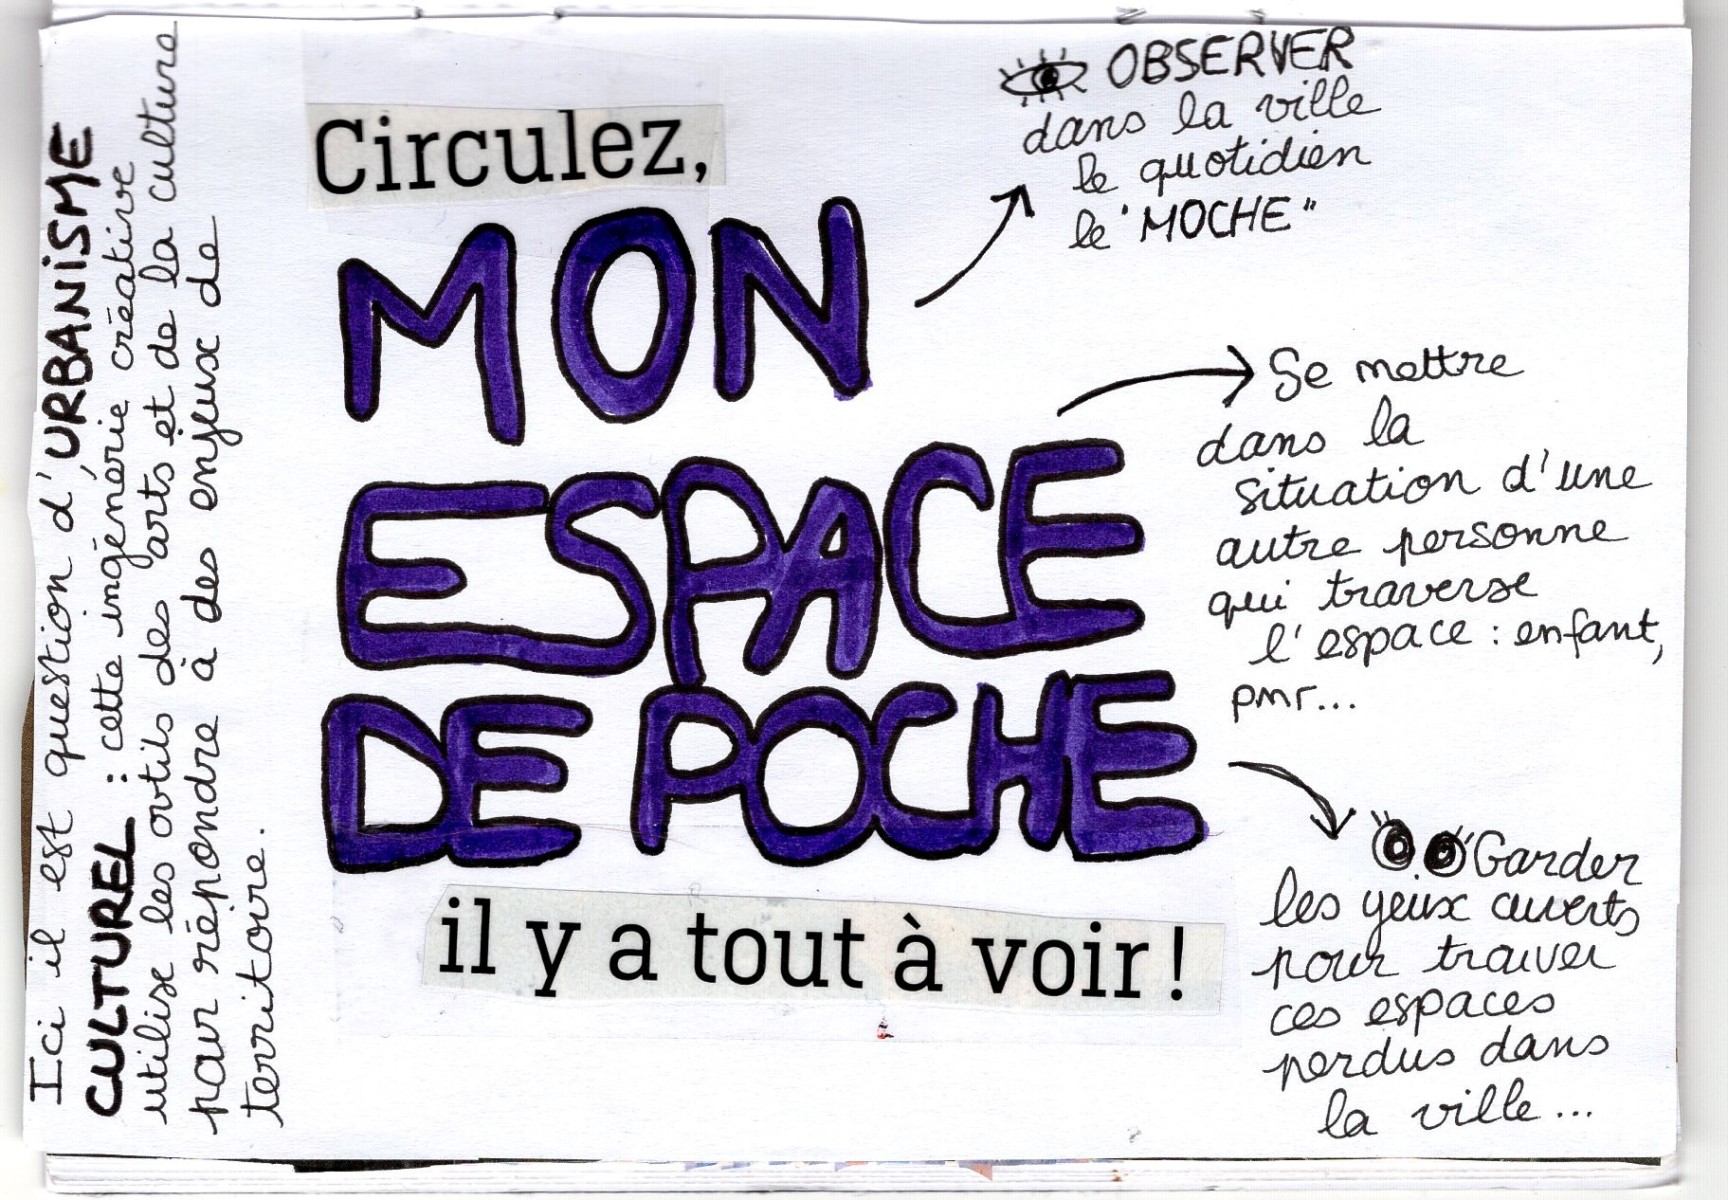 Ici il est question d'URBANISME
CULTUREL : cette ingénerie créative
utilise les outils des arts et de la culture
pour répondre à des enjeux de
territoire.
Circulez,
MON
ESPACE
DE POCHE
il y a tout à voir !
OBSERVER
dans la ville
le quotidien
le "MOCHE"
Se mettre
dans la
situation d'une
autre personne
qui traverse
l'espace : enfant,
pmr...
Garder
les yeux ouverts
pour trouver
ces espaces
perdus dans
la ville...